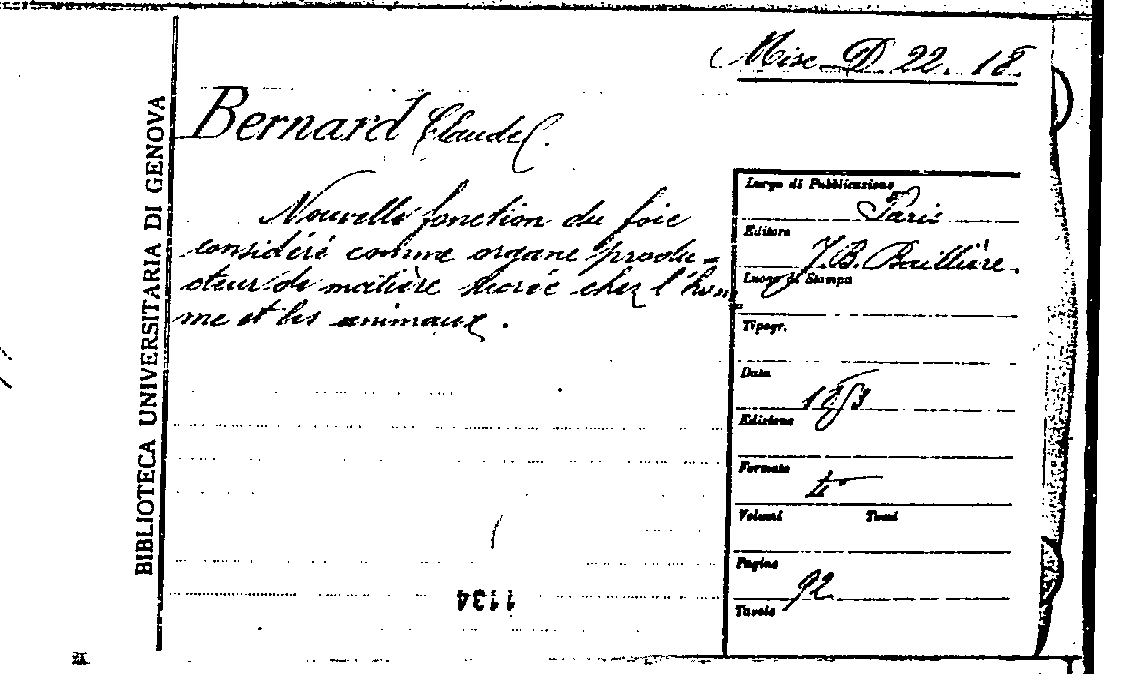 Misc. D. 22. 18.
BIBLIOTECA UNIVERSITARIA DI GENOVA
Bernard Claude.
Nouvelle fonction du foie
considéré comme organe produ-
cteur de matière sucrée chez l'hom
me et les animaux.
Luogo di Pubblicazione
Paris
Editore
J. B. Baillière.
Luogo di Stampa
Tipogr.
Data
1853
Edizione
Formato
4°
Volumi Tomi
Pagine
92
Tavole
1134